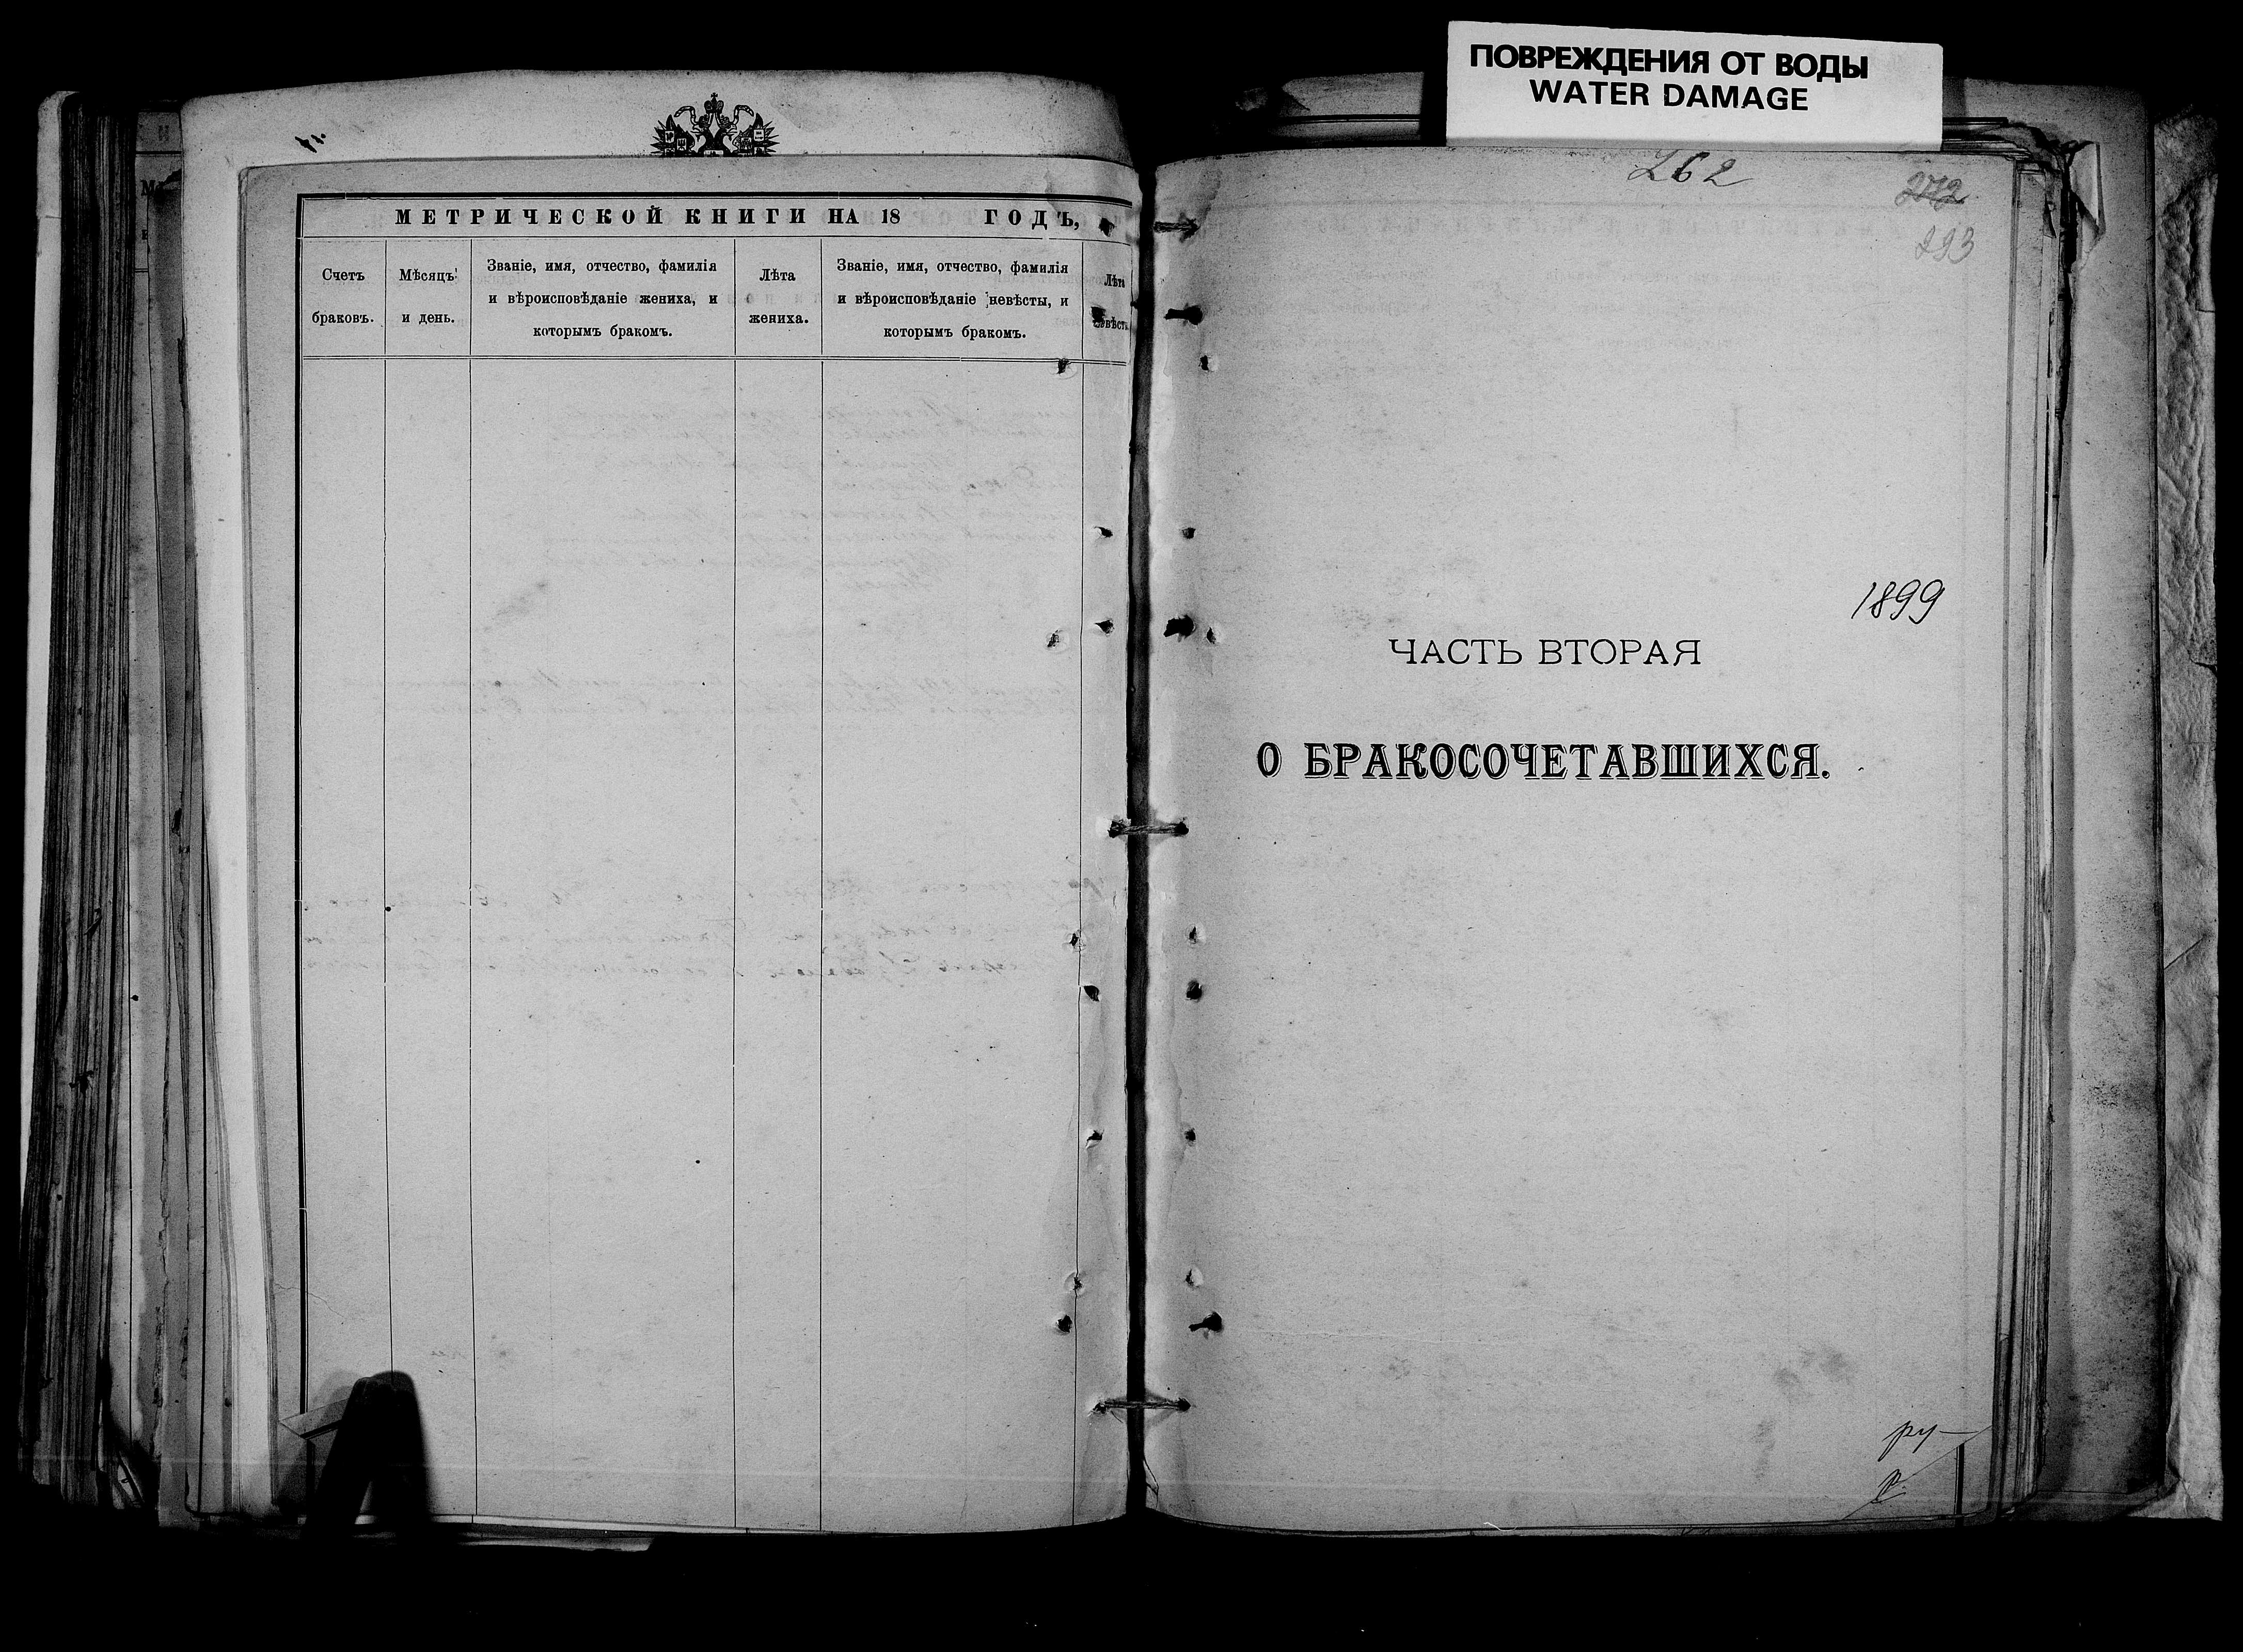 ПОВРЕЖДЕНИЯ ОТ ВОДЫ
WATER DAMAGE
МЕТРИЧЕСКОЙ КНИГИ НА 18 ГОДЪ,
Счетъ
браковъ.
Мѣсяцъ
и день.
Званіе, имя, отчество, фамилія
и вѣроисповѣданіе жениха, и
которымъ бракомъ.
Лѣта
жениха.
Званіе, имя, отчество, фамилія
и вѣроисповѣданіе невѣсты, и
которымъ бракомъ.
Лѣта
262
293
1899
ЧАСТЬ ВТОРАЯ
О БРАКОСОЧЕТАВШИХСЯ.
ру-